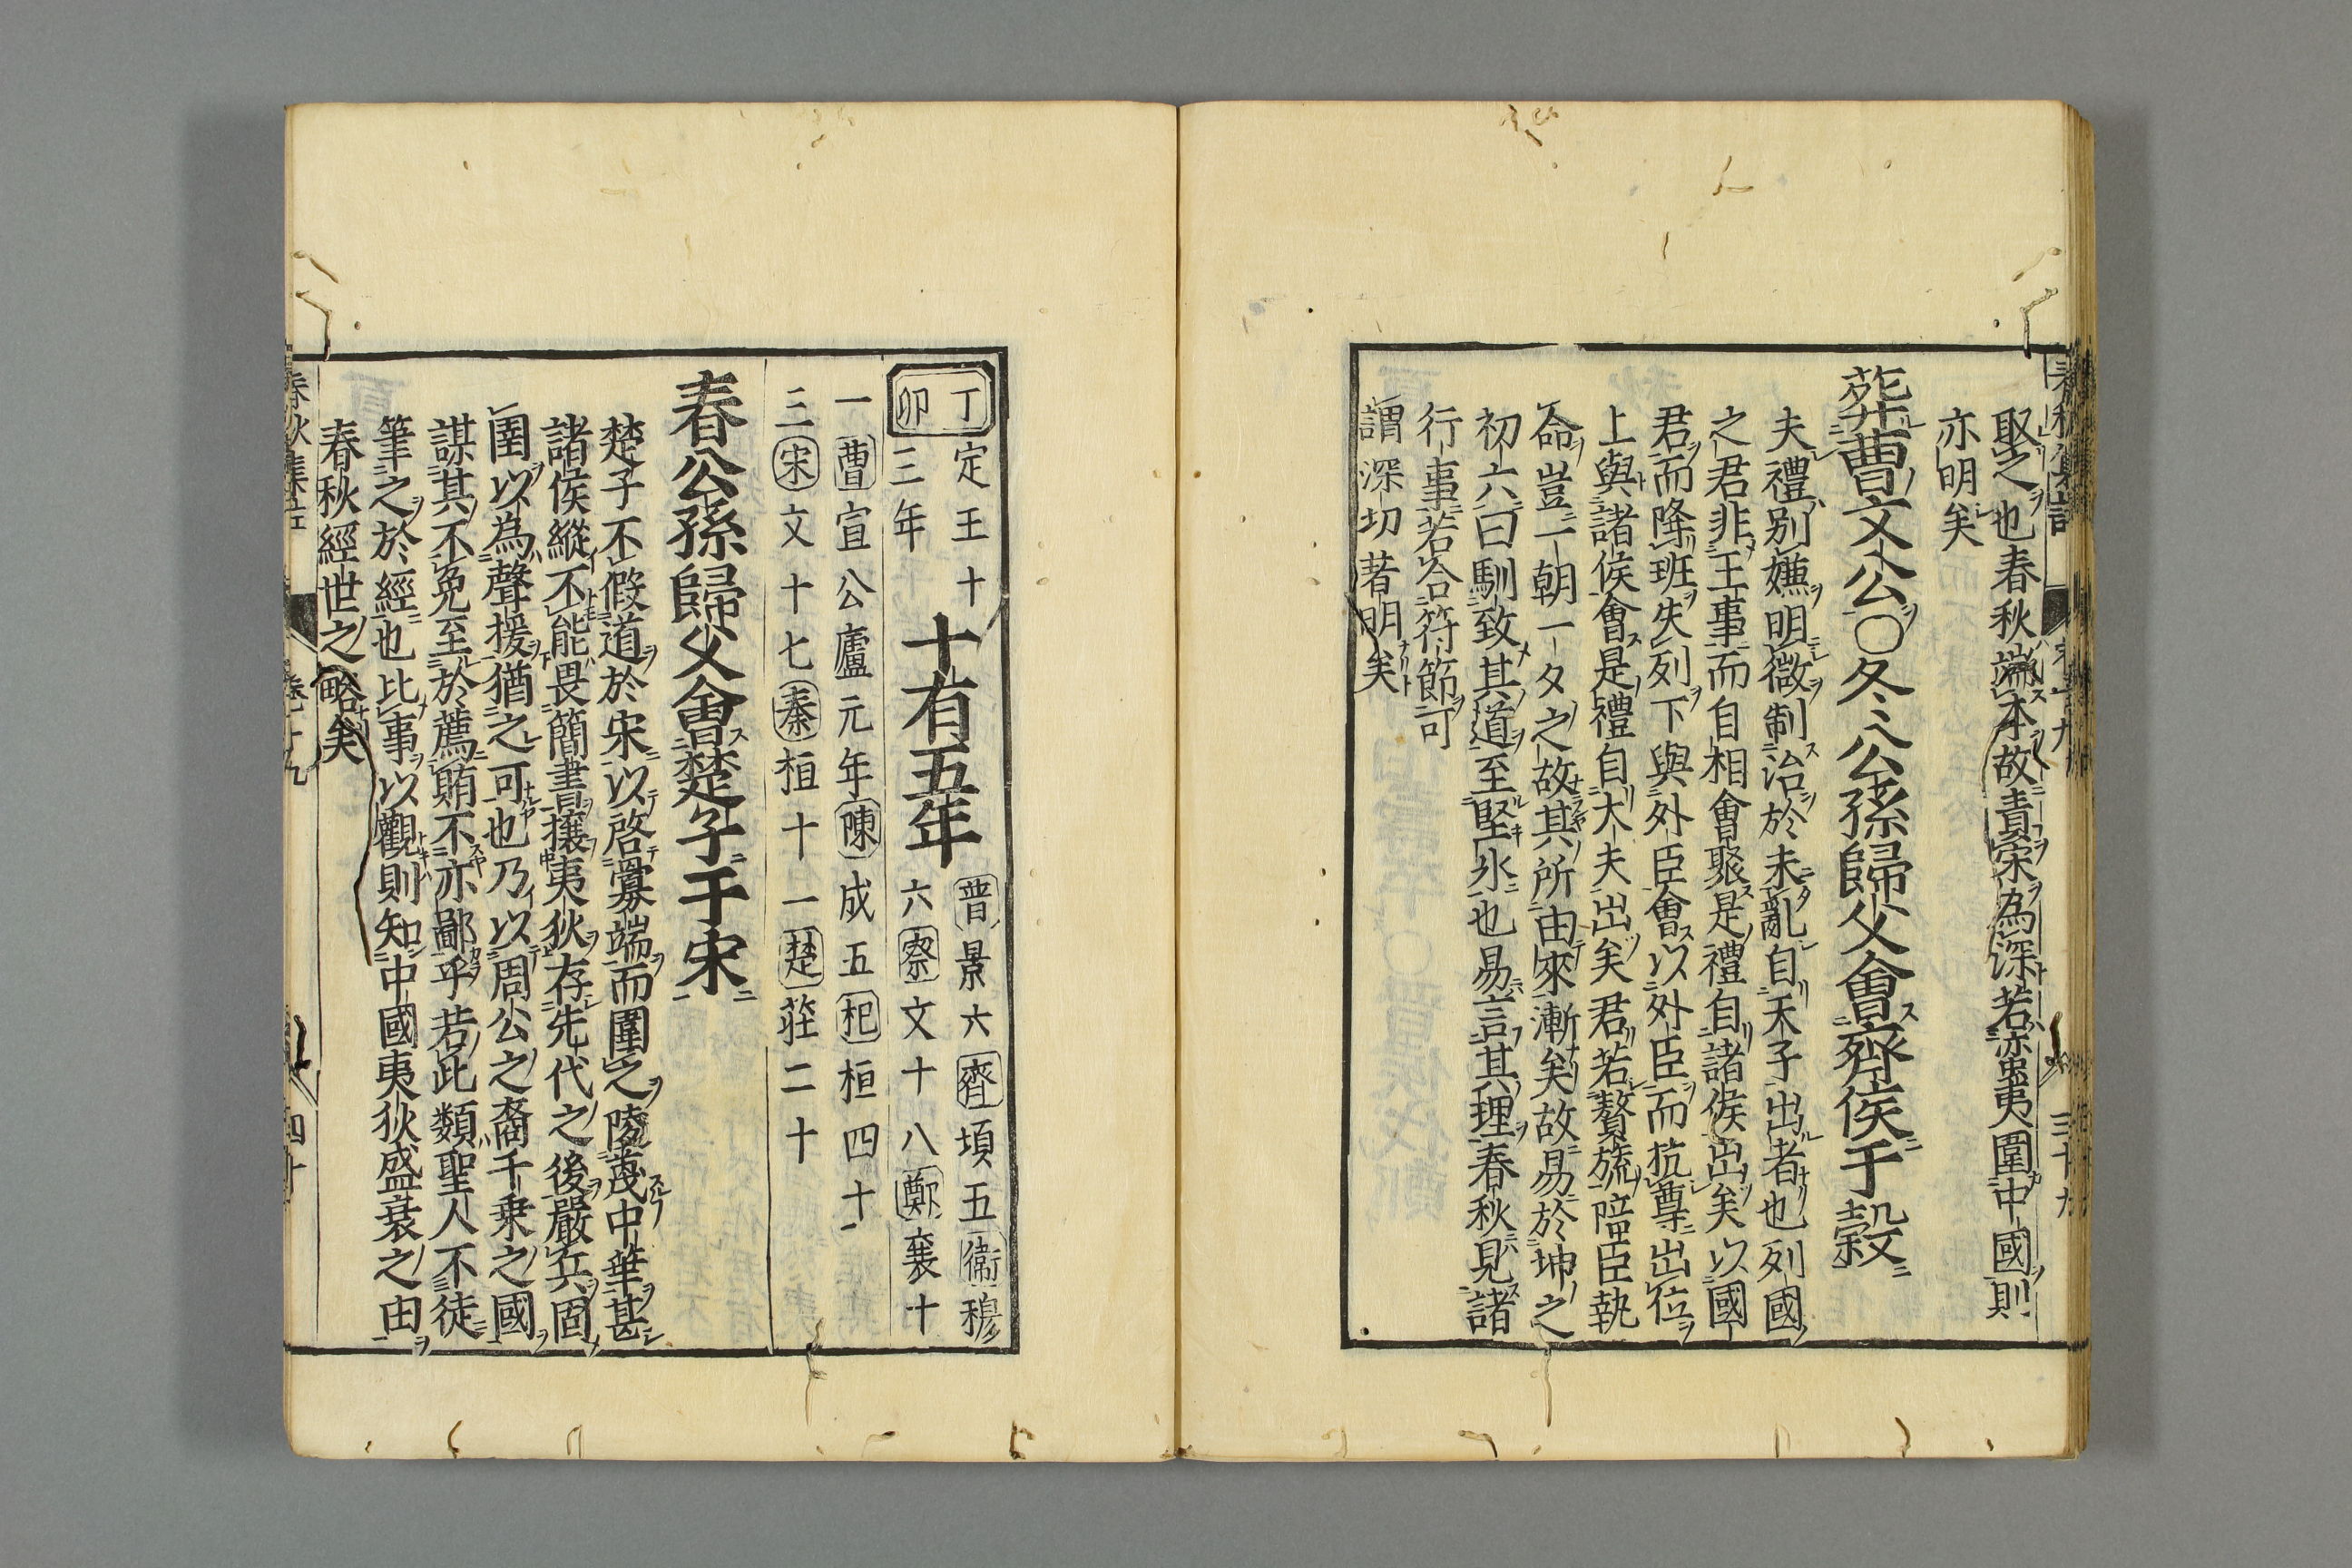 取之也春秋端本故責宋為深若蠻夷圍中國則
亦明矣
葬曹文公〇冬公孫歸父會齊侯于穀
夫禮別嫌明微制治於未亂自天子出者也列國
之君非王事而自相會聚是禮自諸侯出矣以國
君而降班失列下與外臣會以外臣而抗尊出位
上與諸侯會是禮自大夫出矣君若贅旒陪臣執
命豈一朝一夕之故其所由來漸矣故易於坤之
初六曰馴致其道至堅氷也易言其理春秋見諸
行事若合符節可
謂深切著明矣
丁卯
定王十三年
十有五年
晉景六齊頃五衞穆
六蔡文十八鄭襄十
一曹宣公廬元年陳成五杞桓四十
三宋文十七秦桓十一楚莊二十
春公孫歸父會楚子于宋
楚子不假道於宋以啓釁端而圍之陵蔑中華甚
諸侯縱不能畏簡書攘夷狄存先代之後嚴兵固
圉以為聲援猶之可也乃以周公之裔千乗之國
謀其不免至於薦賄不亦鄙乎若此類聖人不徒
筆之於經也比事以觀則知中國夷狄盛衰之由
春秋經世之略矣
四十